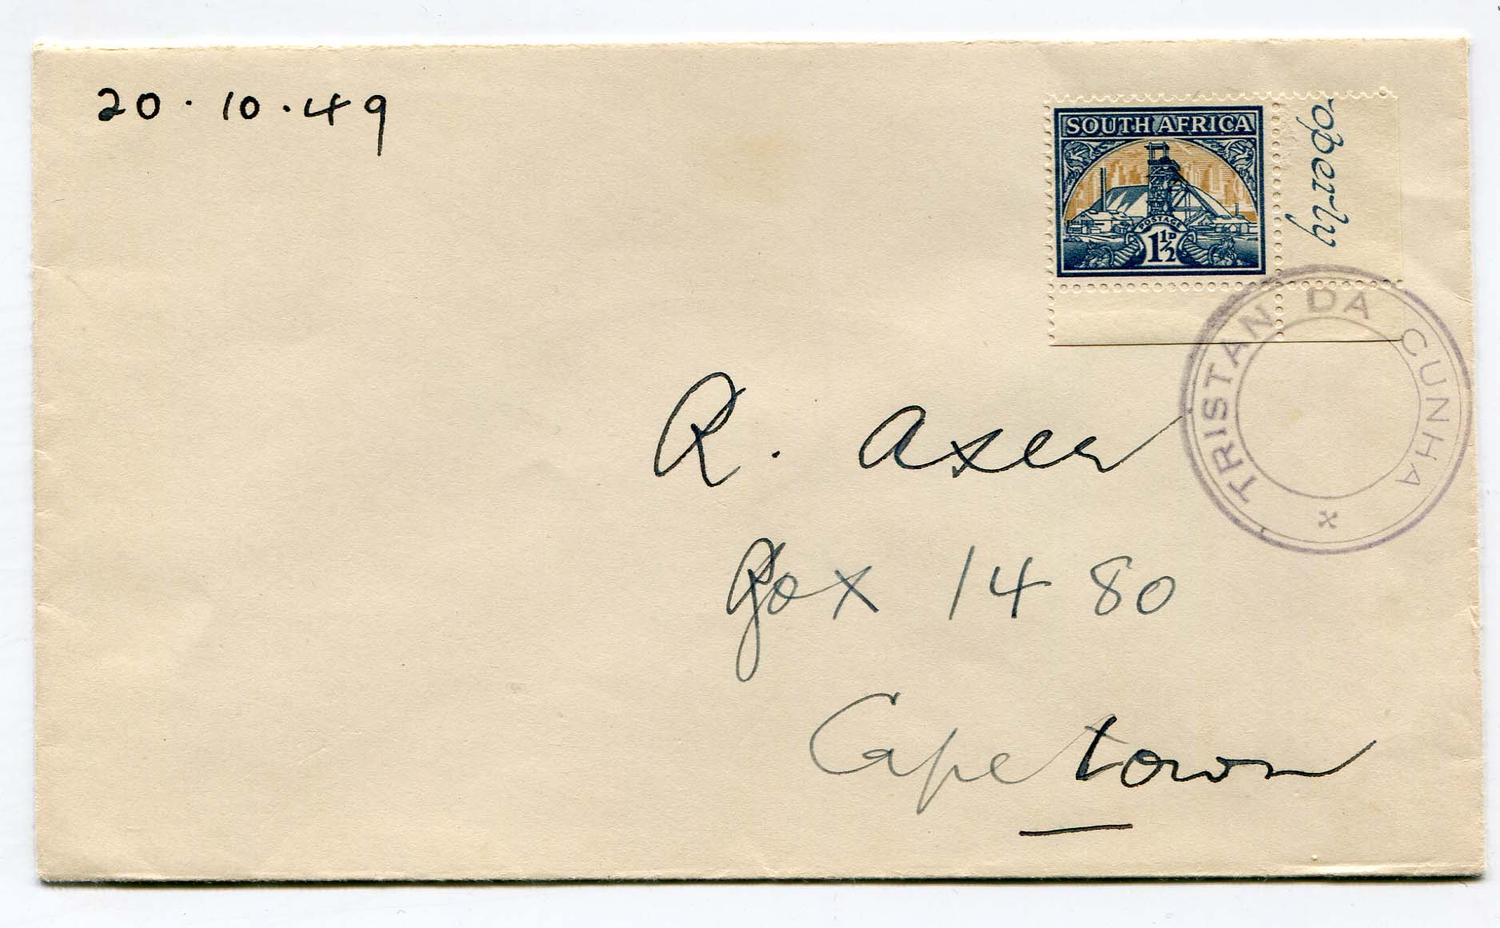 20·10·49
SOUTH AFRICA
POSTAGE
1½D
operly
TRISTAN DA CUNHA
x
R. Axer
Box 1480
Cape town